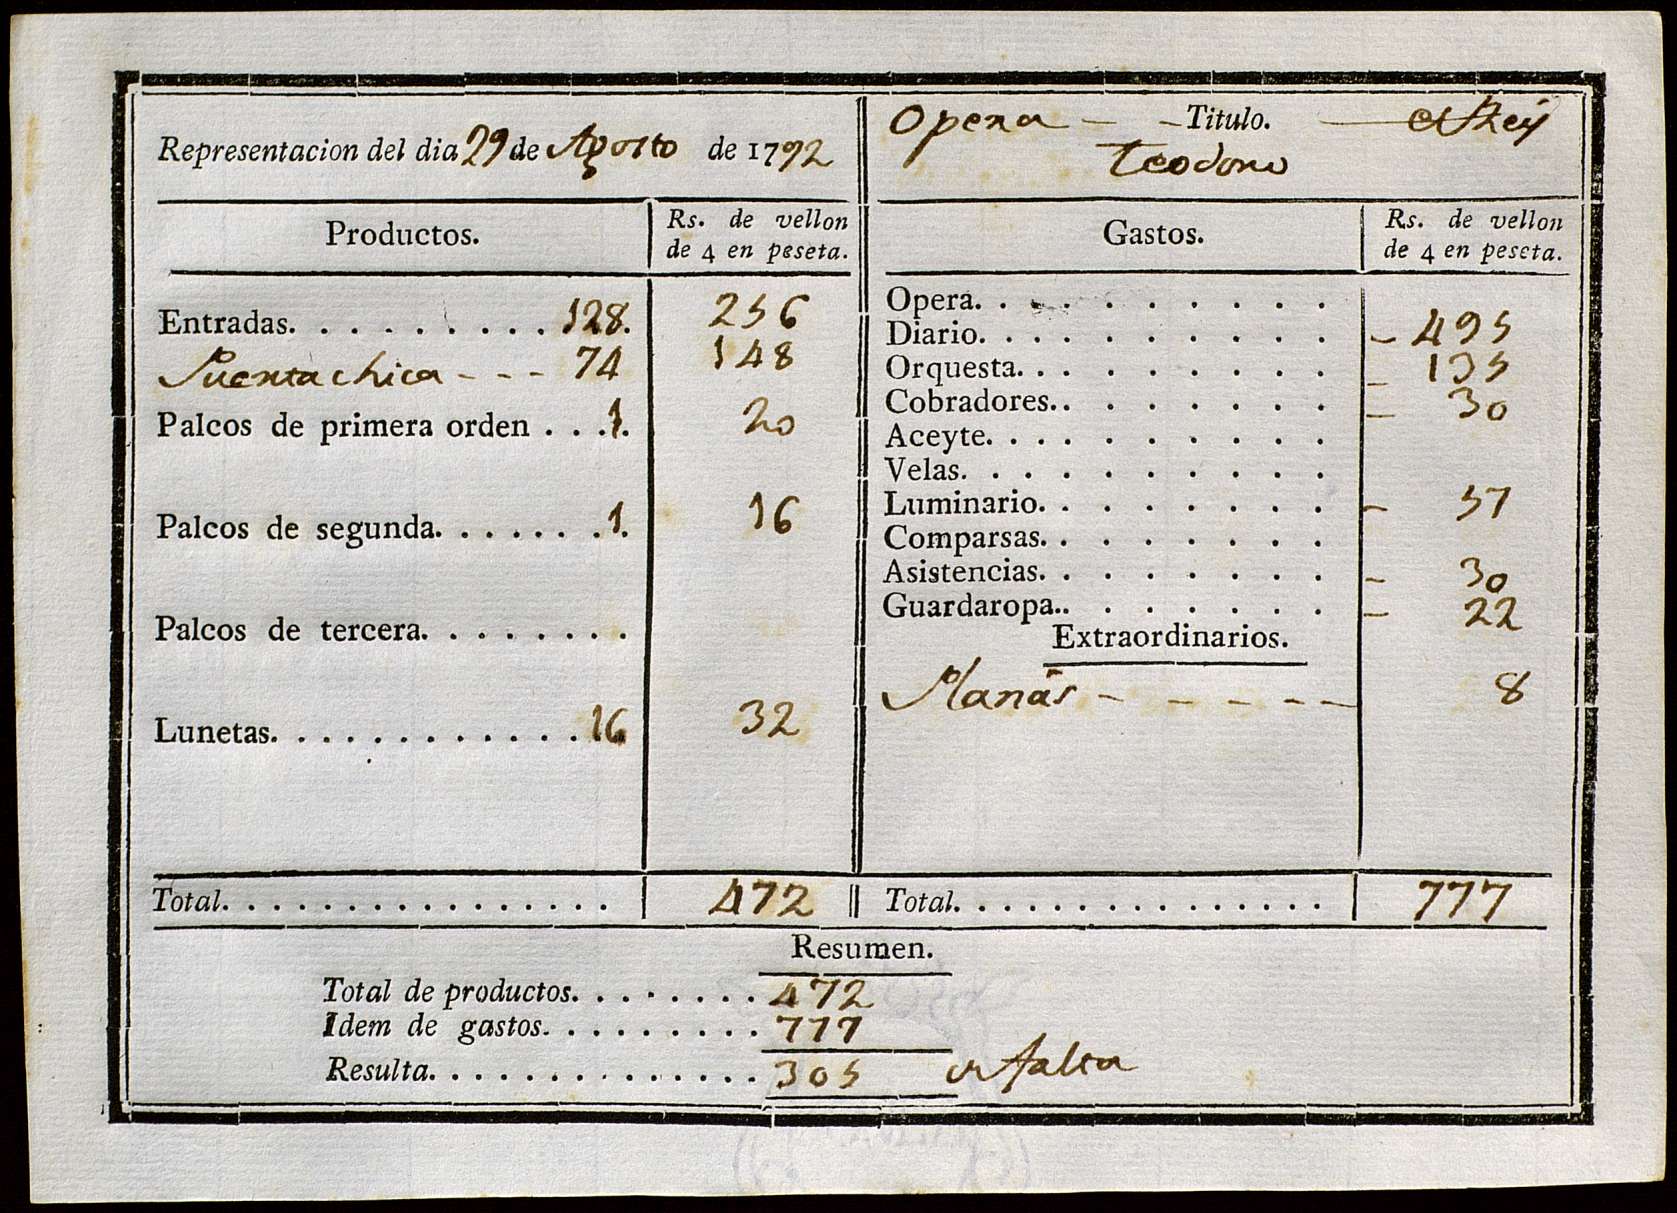 Representacion del dia 29 de Agosto de 1792
Opera - - Titulo. — el Rey
Teodoro
Productos.
Rs. de vellon
de 4 en peseta.
Entradas. . . . . . . . . . 128. 256
Puerta chica - - - 74 148
Palcos de primera orden . . . 1. 20
Palcos de segunda. . . . . . . 1. 16
Palcos de tercera. . . . . . . .
Lunetas. . . . . . . . . . . . . 16 32
Total. . . . . . . . . . . . . . . . 472
Gastos.
Rs. de vellon
de 4 en peseta.
Opera. . . . . . . . . .
Diario. . . . . . . . . . - 495
Orquesta. . . . . . . . . - 135
Cobradores.. . . . . . . - 30
Aceyte. . . . . . . . . .
Velas. . . . . . . . . .
Luminario. . . . . . . . - 57
Comparsas. . . . . . . .
Asistencias. . . . . . . . - 30
Guardaropa.. . . . . . . - 22
Extraordinarios.
- - - - - 8
Total. . . . . . . . . . . . . . . 777
Resumen.
Total de productos. . . . . . . . 472
Idem de gastos. . . . . . . . . 777
Resulta. . . . . . . . . . . . . . 305 de falta